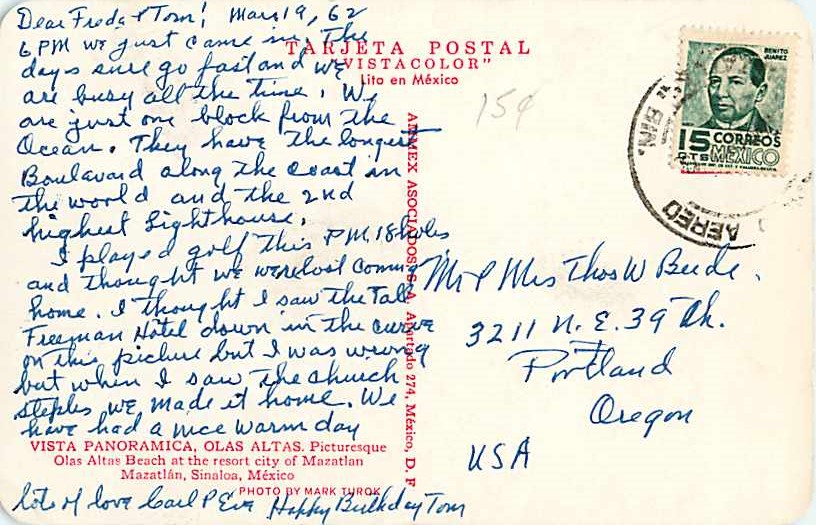 Dear Freda & Tom! Mar 19, 62
6 PM we just came in. The
days sure go fast and we
are busy all the time. We
are just one block from the
Ocean. They have the longest
Boulavard along the coast in
the world and the 2nd
highest Lighthouse.
I played golf this P.M. 18 holes
and thought we were lost coming
home. I thought I saw the Tall
Freeman Hotel down in the curve
on this picture but I was wrong
but when I saw the church
steples we made it home. We
have had a nice warm day
lots of love Carl & Eva Happy Birthday Tom
TARJETA POSTAL
"VISTACOLOR"
Lito en México
15¢
AMMEX ASOCIADOS, S. A. Apartado 274, México, D. F
VISTA PANORAMICA, OLAS ALTAS. Picturesque
Olas Altas Beach at the resort city of Mazatlan
Mazatlán, Sinaloa, México
PHOTO BY MARK TUROK
BENITO
JUAREZ
15 CORREOS
CTS MEXICO
AEREO
SIN.
Mr & Mrs Thos W
3211 N.E. 39th.
Portland
Oregon
USA